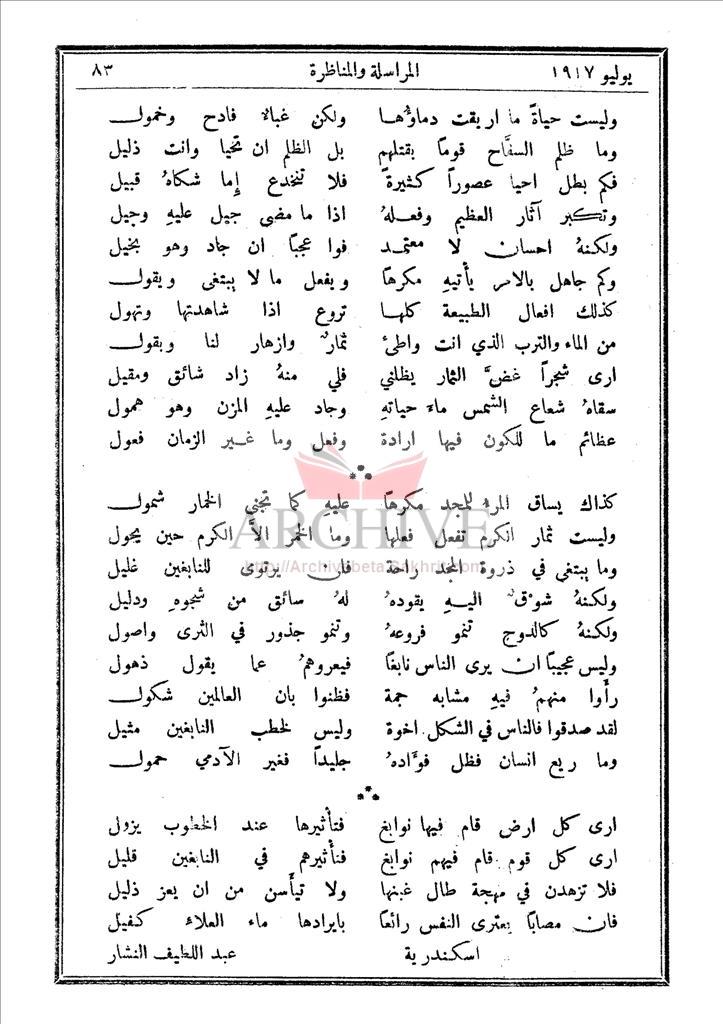 يوليو ١٩١٧ المراسلة والمناظرة ٨٣
وليست حياةً ما اريقت دماؤُها ولكن غباءٌ فادح وخمول
وما ظلم السفَّاح قوماً بقتلهم بل الظلم ان تحيا وانت ذليل
فكم بطل احيا عصوراً كثيرةً فلا تنخدع إِما شكاهُ قبيل
وتكبر آثار العظيم وفعلهُ اذا ما مضى جيل عليهِ وجيل
ولكنهُ احسان لا معتمد فوا عجباً ان جاد وهو بخيل
وكم جاهل بالامر يأتيهِ مكرهاً ويفعل ما لا يبتغى ويقول
كذلك افعال الطبيعة كلها تروع اذا شاهدتها وتهول
من الماء والترب الذي انت واطئ ثمارٌ وازهار لنا وبقول
ارى شجراً غضَّ الثمار يظلني فلي منهُ زاد شائق ومقيل
سقاهُ شعاع الشمس ماءَ حياتهِ وجاد عليهِ المزن وهو همول
عظائم ما للكون فيها ارادة وفعل وما غير الزمان فعول
كذاك يساق المرءُ للمجد مكرهاً عليهِ كما تجنى الخمار شمول
وليست ثمار الكرم تفعل فعلها وما الخمر الاَّ الكرم حين يحول
وما يبتغى في ذروة المجد راحة فان يرتوى للنابغين غليل
ولكنهُ شوقٌ اليهِ يقودهُ لهُ سائق من شجوهِ ودليل
ولكنهُ كالدوح تنمو فروعهُ وتنمو جذور في الثرى واصول
وليس عجيباً ان يرى الناس نابغاً فيعروهمُ عما يقول ذهول
رأَوا منهمُ فيهِ مشابه جمة فظنوا بان العالمين شكول
لقد صدقوا فالناس في الشكل اخوة وليس لخطب النابغين مثيل
وما ريع انسان فظل فؤَادهُ جليداً فغير الآدمي حمول
ارى كل ارض قام فيها نوابغ فتأثيرها عند الخطوب يزول
ارى كل قوم قام فيهم نوابغ فتأثيرهم في النابغين قليل
فلا تزهدن في مهجة طال غبنها ولا تيأَسن من ان يعز ذليل
فان مصاباً يعترى النفس رائعاً بايرادها ماء العلاء كفيل
اسكندرية عبد اللطيف النشار
ARCHIVE